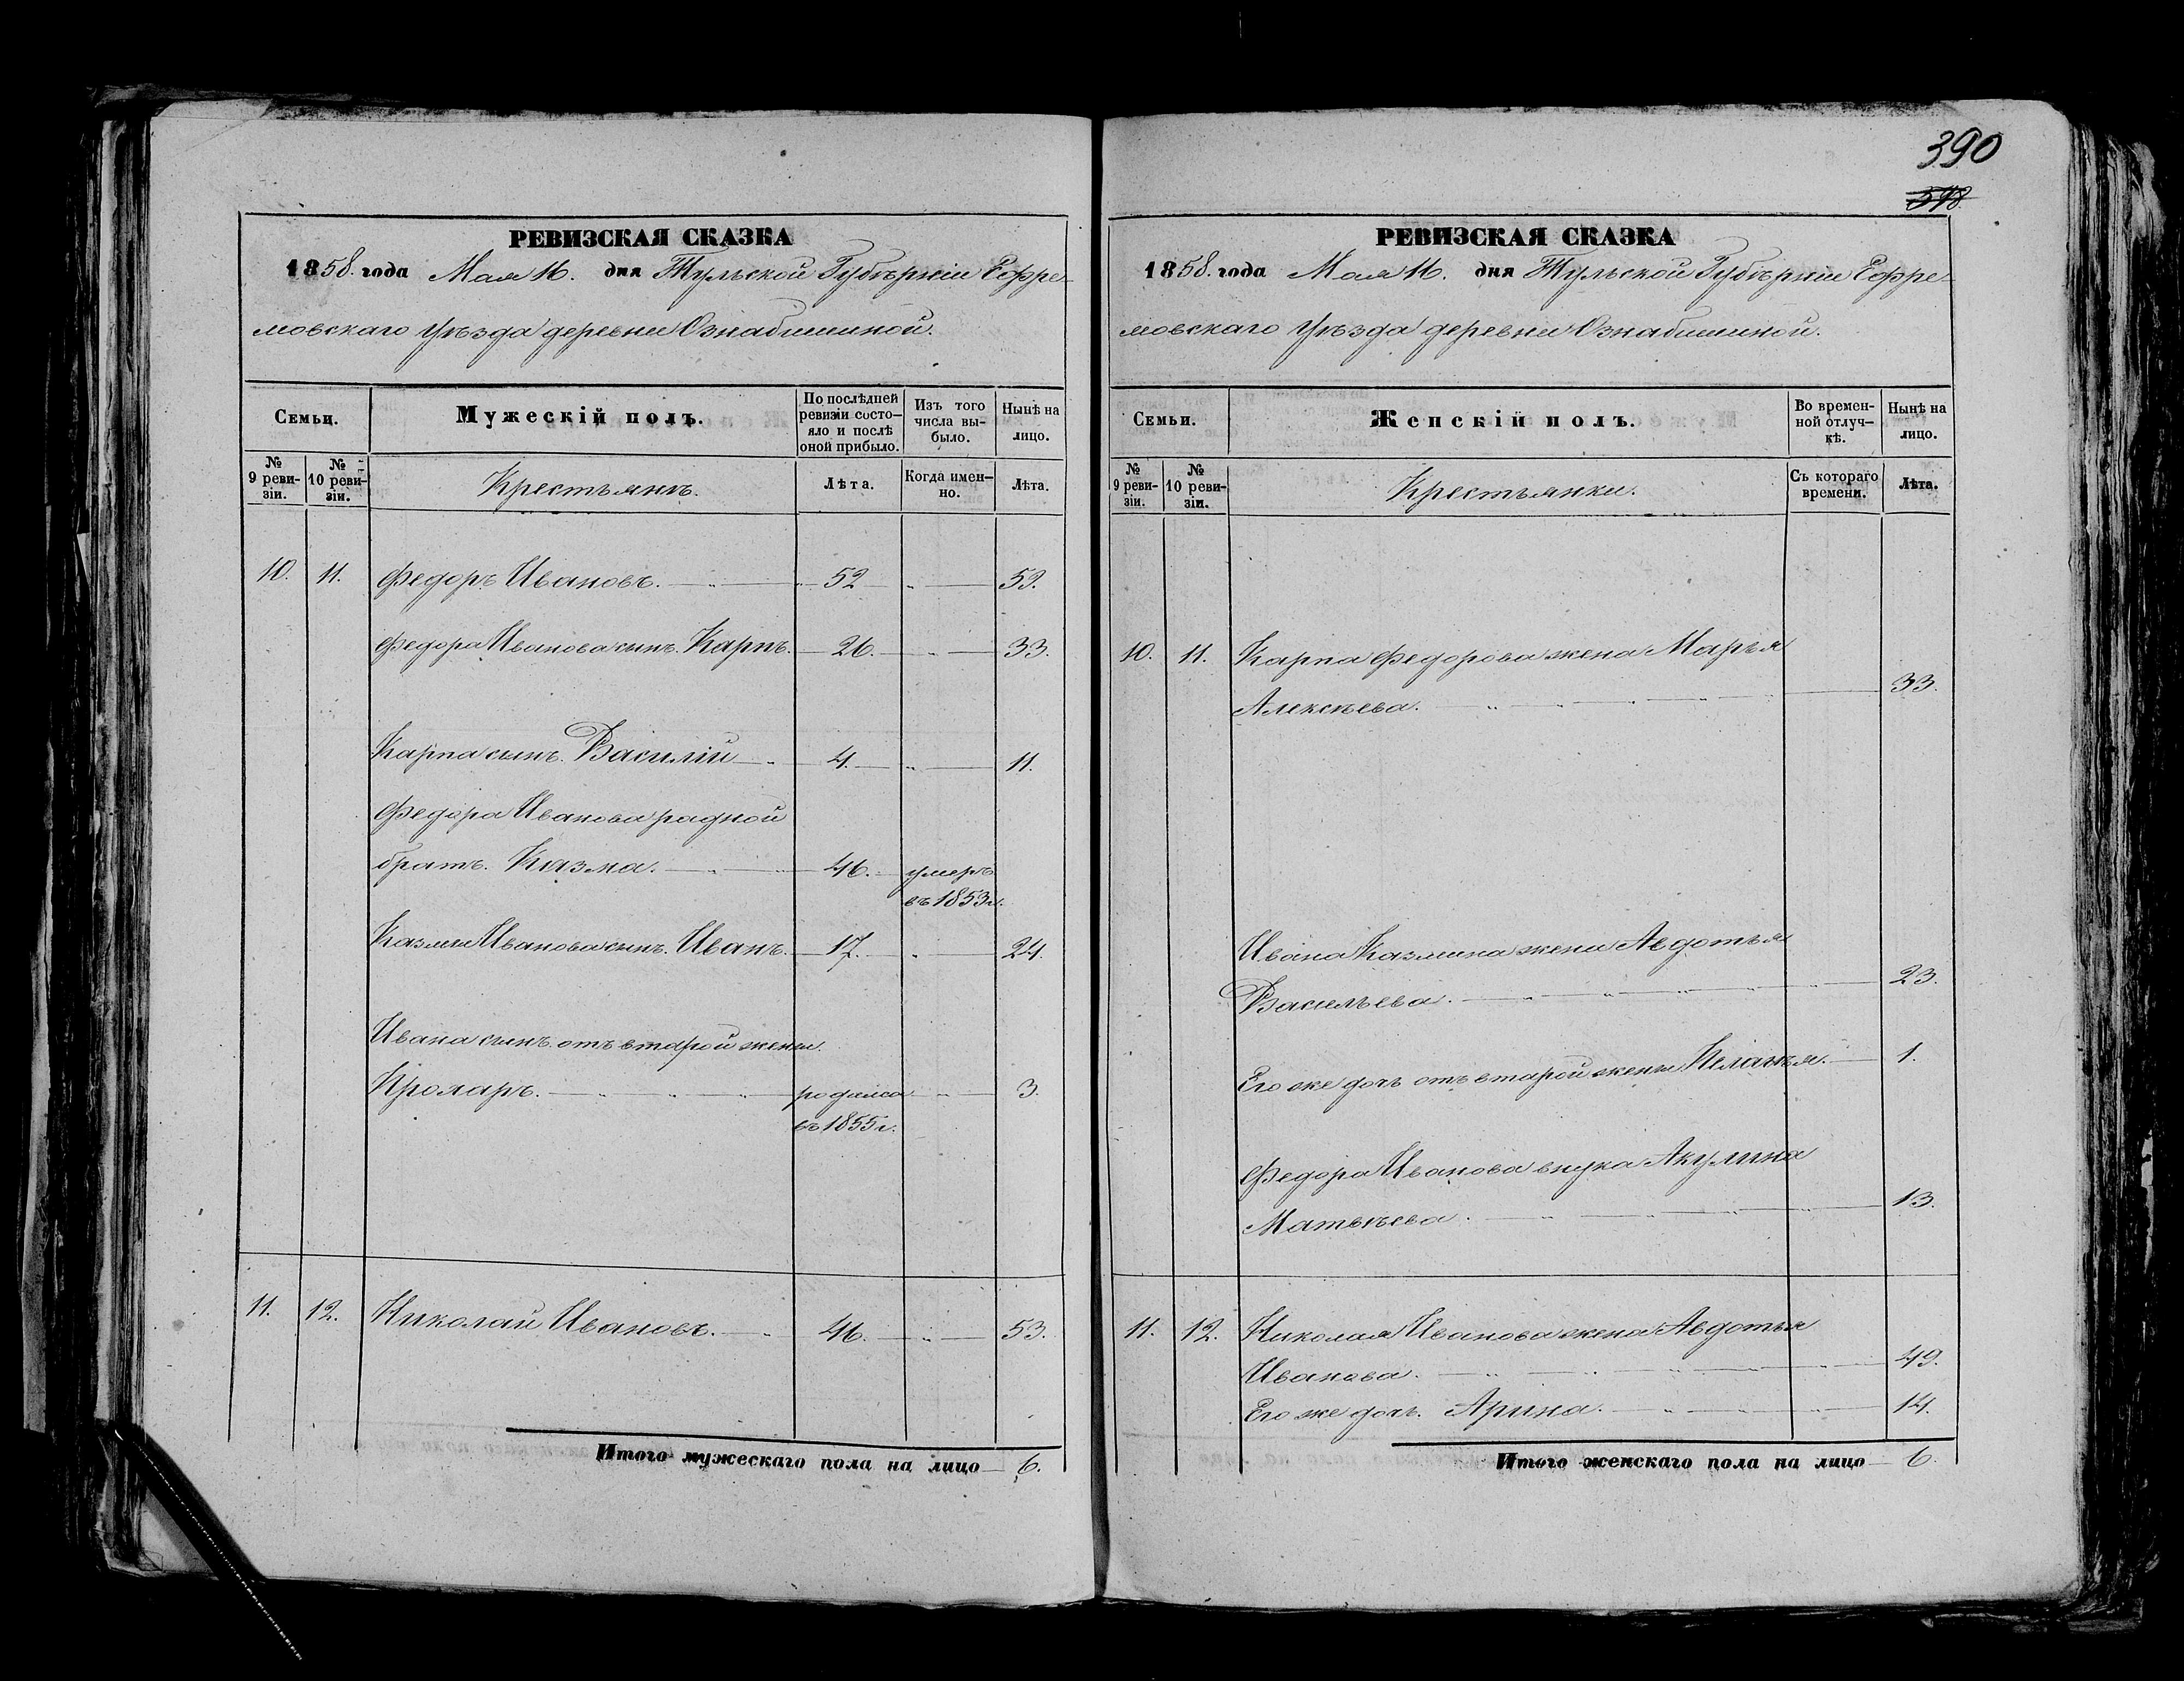 390
398
РЕВИЗСКАЯ СКАЗКА
1858. года Мая 16. дня Тульской Губѣрніи Ефре-
мовскаго уѣзда деревни Ознабишиной.
Семьи.
Мужескій полъ.
По послѣдней ревизіи состо-яло и послѣ оной прибыло.
Изъ того числа вы-было.
Нынѣ на лицо.
№ 9 реви-зіи.
№ 10 реви-зіи.
Крестьянъ.
Лѣта.
Когда имен-но.
Лѣта.
10. 11. Федоръ Ивановъ. 52 59.
Федора Иванова сынъ. Карпъ. 26. 33.
Карпа сынъ. Василій 4. 11.
Федора Иванова радной
братъ. Казма. 46. умеръ
въ 1853 г.
Казмы Иванова сынъ. Иванъ. 17. 24.
Ивана сынъ отъ втарой жены.
родался 3.
въ 1855 г.
11. 12. Николай Ивановъ. 46. 53.
Итого мужескаго пола на лицо 6.
РЕВИЗСКАЯ СКАЗКА
1858. года Мая 16. дня Тульской Губѣрніи Ефре-
мовскаго уѣзда деревни Ознабишиной.
Семьи.
Женскій полъ.
Во времен-ной отлуч-кѣ.
Нынѣ на лицо.
№ 9 реви-зіи.
№ 10 реви-зіи.
Крестьянки.
Съ котораго времени.
Лѣта.
10. 11. Карпа Федорова жена Марья
Алексѣева. 33.
Ивана Казмина жена Авдотья
Васильева. 23.
Его же дочь отъ втарой жены 1.
Федора Иванова внука Акулина
Матвѣева. 13.
11. 12. Николая Иванова жена Авдотья
Иванова. 49.
Его же дочь. Арина. 14.
Итого женскаго пола на лицо 6.